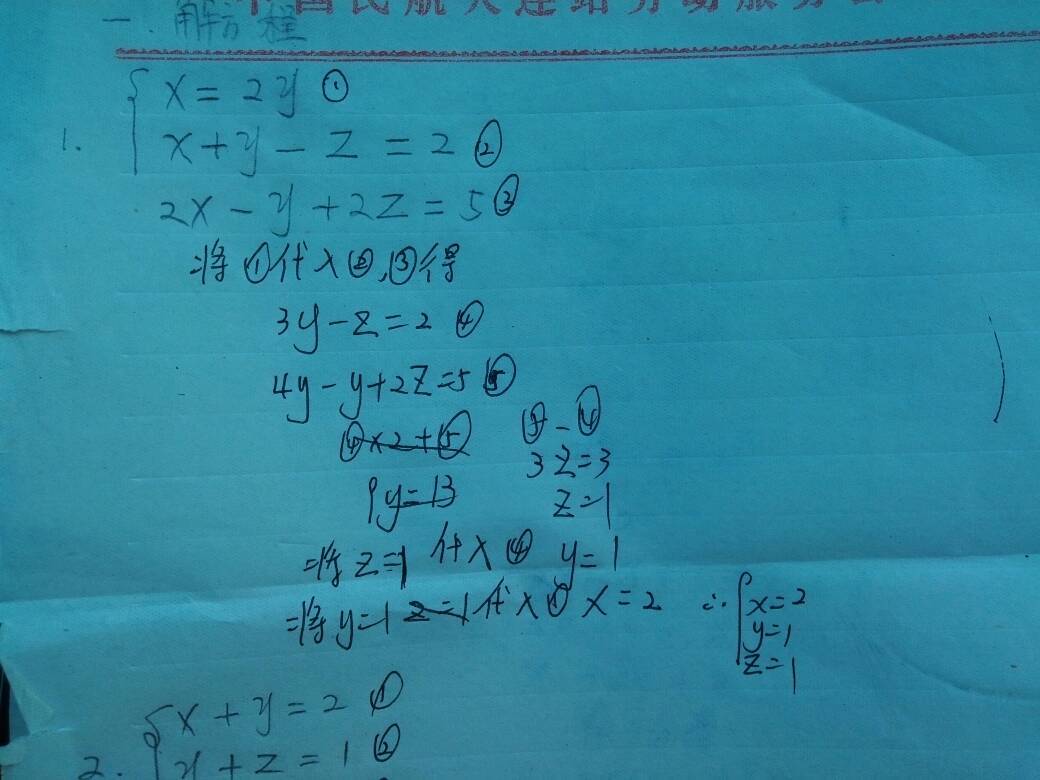 一.解方程
1. { x = 2y ①
x+y-z = 2 ②
2x-y+2z=5③
将①代入②,③得
3y-z=2 ④
4y-y+2z=5 ⑤
④×2+⑤ ⑤-④
9y=13 3z=3
z=1
将z=1 代入④ y=1
将y=1 z=1代入① x=2 ∴ { x=2
y=1
z=1
{ x+y=2 ①
2. x+z=1 ②